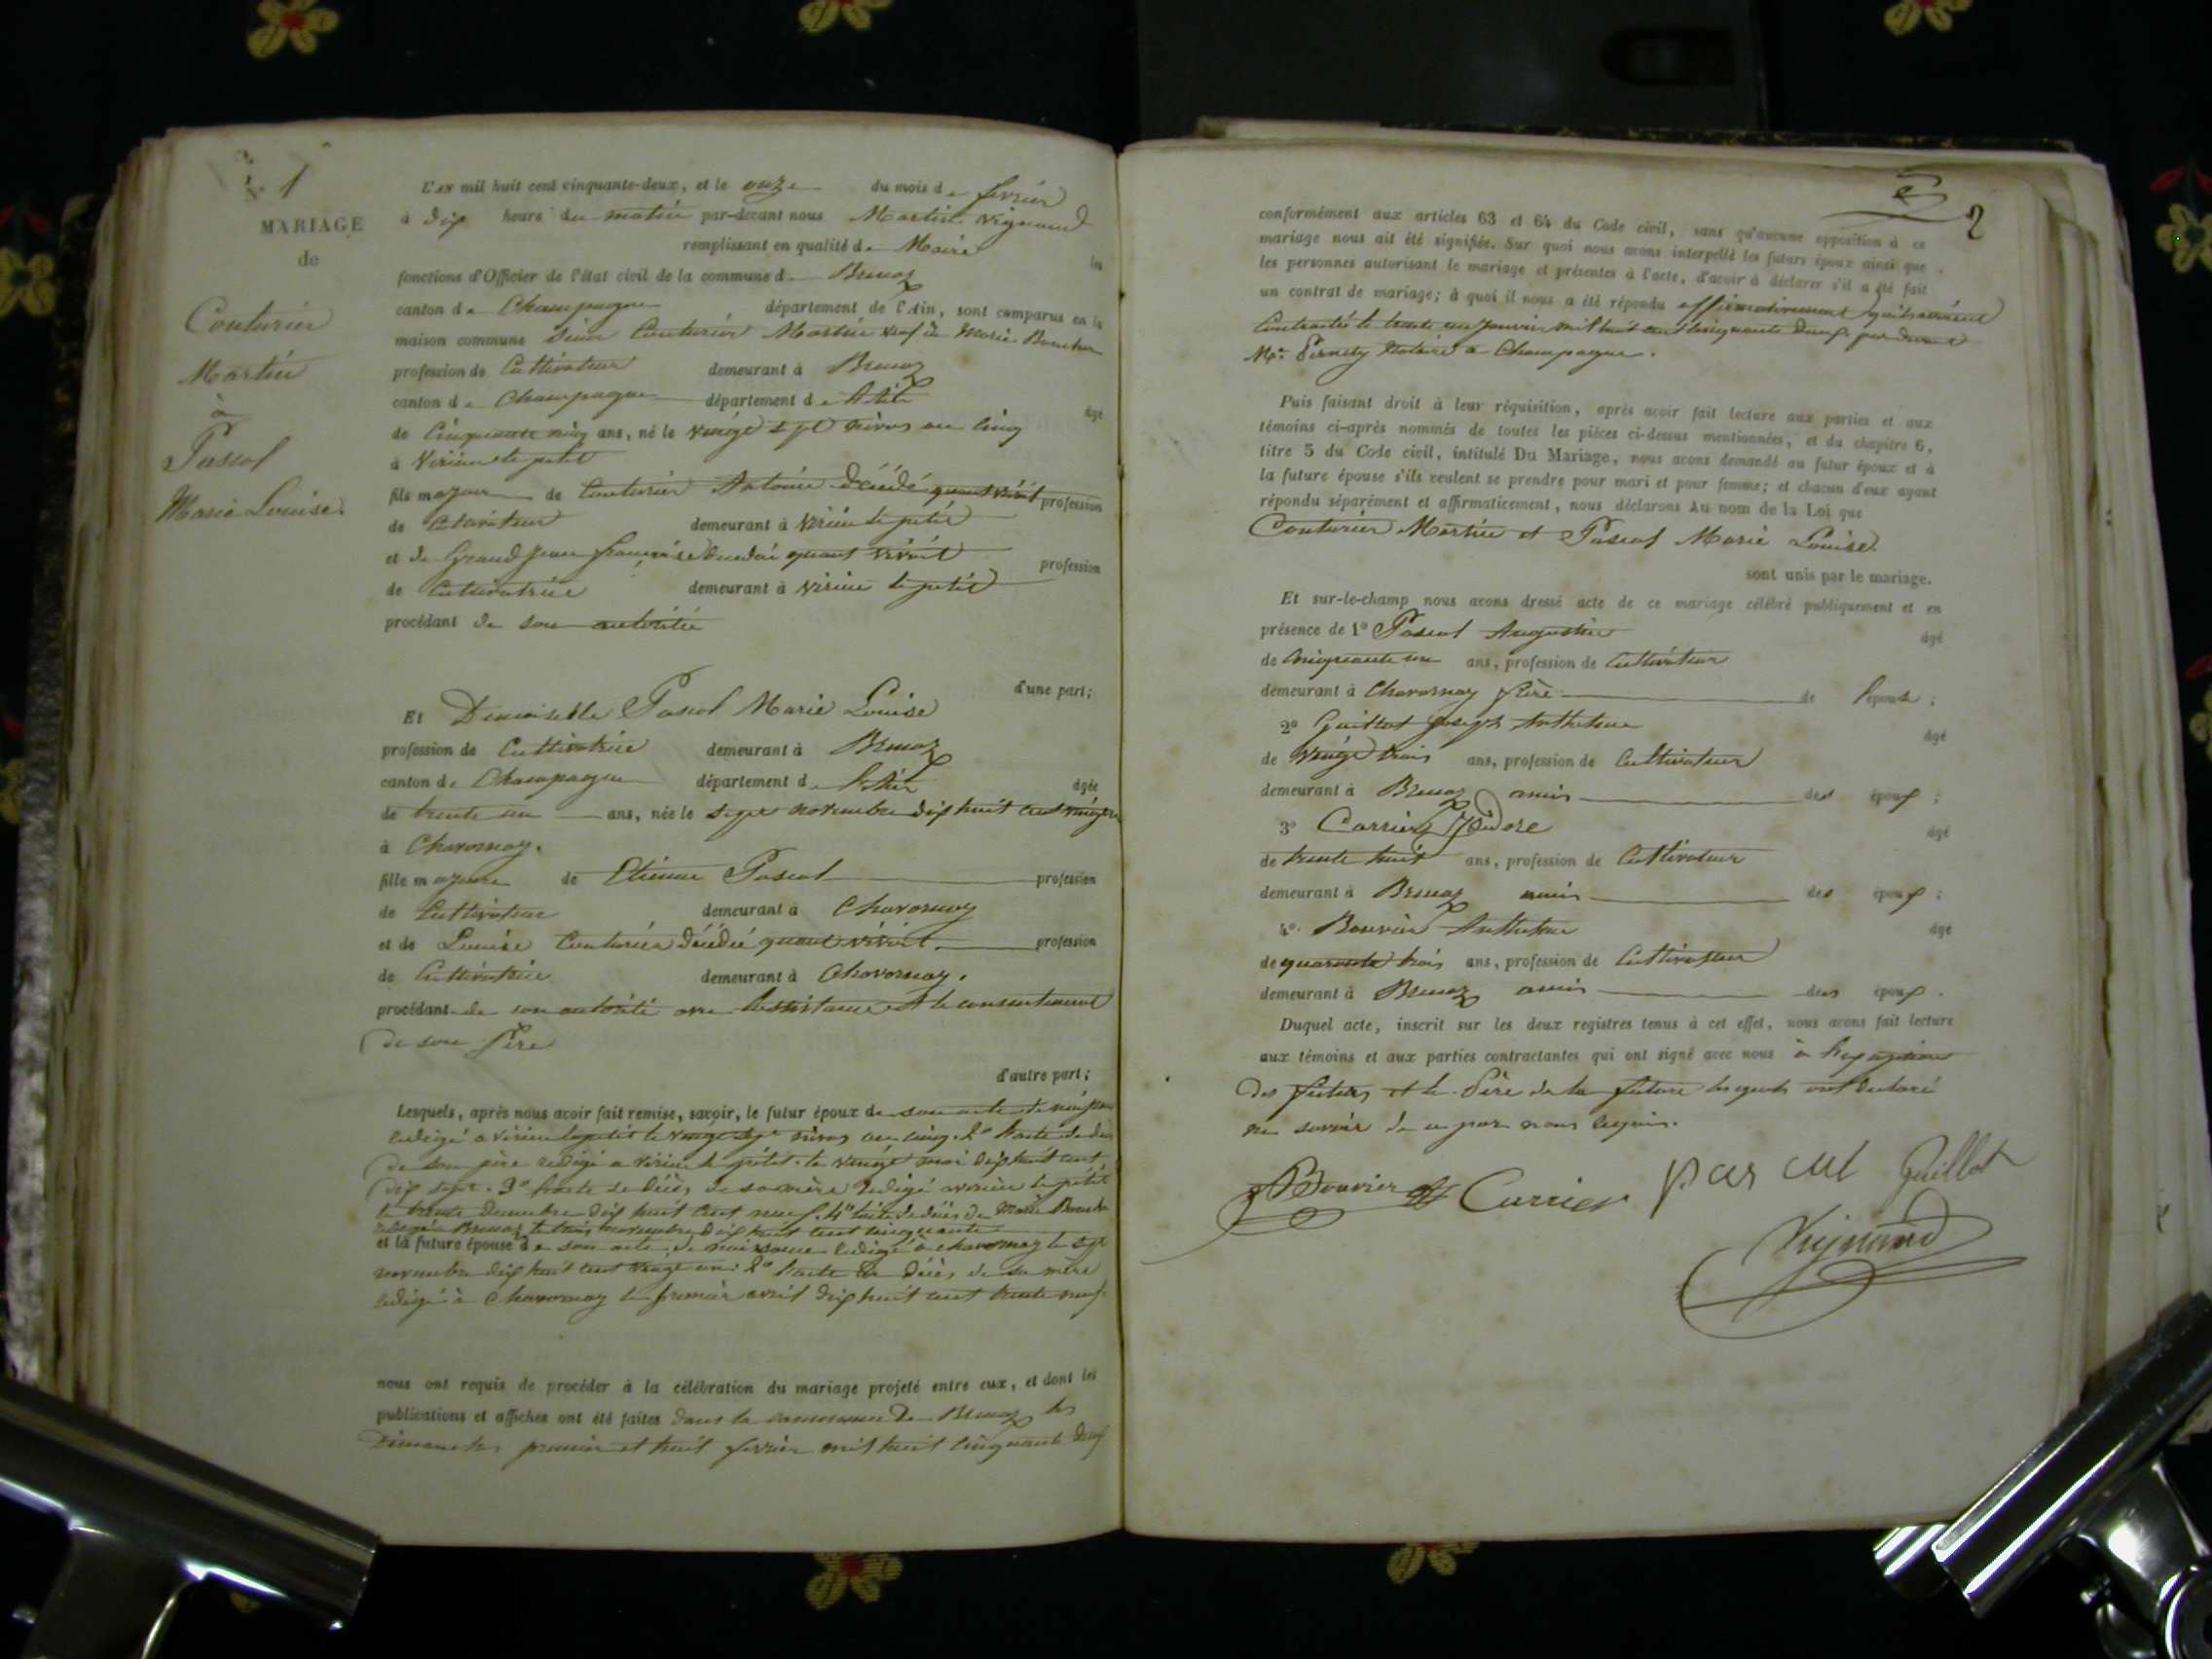 N° 1
MARIAGE
de
Couturier
Martin
à
Pascal
Marie Louise.
L'AN mil huit cent cinquante-deux, et le onze du mois de février
à dix heures du matin par-devant nous Martin Vignand
remplissant en qualité de Maire les
fonctions d'Officier de l'état civil de la commune de Brenaz
canton de Champagne département de l'Ain, sont comparus en la
maison commune Sieur Couturier Martin veuf de Marie
profession de Cultivateur demeurant à Brenaz
canton de Champagne département de l'Ain âgé
de Cinquante ans, né le vingt sept nivos an cinq
à Virieu le petit
fils majeur de Couturier Antoine décédé quant vivait profession
de Cultivateur demeurant à Virieu le petit
et de Grand Jean françoise décédée quant vivait profession
de Cultivatrice demeurant à Virieu le petit
procédant de son autorité
d'une part;
Et Demoiselle Pascal Marie Louise
profession de Cultivatrice demeurant à Brenaz
canton de Champagne département de l'Ain âgée
de trente un ans, née le sept novembre dix huit cent vingt un
à Chavornay.
fille majeure de Etienne Pascal profession
de Cultivateur demeurant à Chavornay
et de Louise Couturier décédée quant vivait profession
de Cultivatrice demeurant à Chavornay.
procédant de son autorité avec l'assistance et le consentement
de son Père
d'autre part;
Lesquels, après nous avoir fait remise, savoir, le futur époux de son acte de
redigé a Virieu le petit le vingt sept nivos an cinq. 2° l'acte de
de son père redigé a Virieu le petit le vingt mai dix huit cent
dix sept. 3° l'acte de décès de sa mère redigé a virieu le petit
le trente décembre dix huit cent neuf. 4° l'acte de décès de Marie
redigé a Brenaz le trois novembre dix huit cent cinquante
et la future épouse de son acte de naissance redigé à chavornay le sept
novembre dix huit cent vingt un: 2° l'acte de décès de sa mère
redigé à Chavornay le premier avril dix huit cent trente neuf.
nous ont requis de procéder à la célébration du mariage projeté entre eux, et dont les
publications et affiches ont été faites dans la commune de Brenaz les
Dimanches premier et huit février mil huit cinquante deux
2
conformément aux articles 63 et 64 du Code civil, sans qu'aucune opposition à ce
mariage nous ait été signifiée. Sur quoi nous avons interpellé les futurs époux ainsi que
les personnes autorisant le mariage et présentes à l'acte, d'avoir à déclarer s'il a été fait
un contrat de mariage; à quoi il nous a été répondu affirmativement
Contracté le trente un Janvier mil huit cent cinquante deux par devant
Mr. Notaire a Champagne.
Puis faisant droit à leur réquisition, après avoir fait lecture aux parties et aux
témoins ci-après nommés de toutes les pièces ci-dessus mentionnées, et du chapitre 6,
titre 5 du Code civil, intitulé Du Mariage, nous avons demandé au futur époux et à
la future épouse s'ils veulent se prendre pour mari et pour femme; et chacun d'eux ayant
répondu séparément et affirmativement, nous déclarons Au nom de la Loi que
Couturier Martin et Pascal Marie Louise.
sont unis par le mariage.
Et sur-le-champ nous avons dressé acte de ce mariage célébré publiquement et en
présence de 1° Pascal Augustin âgé
de cinquante un ans, profession de Cultivateur
demeurant à Chavornay frère de l'épouse;
2° Guillot Joseph Anthelme âgé
de vingt trois ans, profession de Cultivateur
demeurant à Brenaz amis des époux;
3° Carrier Isidore âgé
de trente huit ans, profession de Cultivateur
demeurant à Brenaz amis des époux;
4° Bouvier Anthelme âgé
de quarante trois ans, profession de Cultivateur
demeurant à Brenaz amis des époux.
Duquel acte, inscrit sur les deux registres tenus à cet effet, nous avons fait lecture
aux témoins et aux parties contractantes qui ont signé avec nous à l'exception
des futurs et le Père de la future lesquels ont declaré
ne savoir de ce par nous requis.
Bouvier Carrier pascal Guillot
Vignand